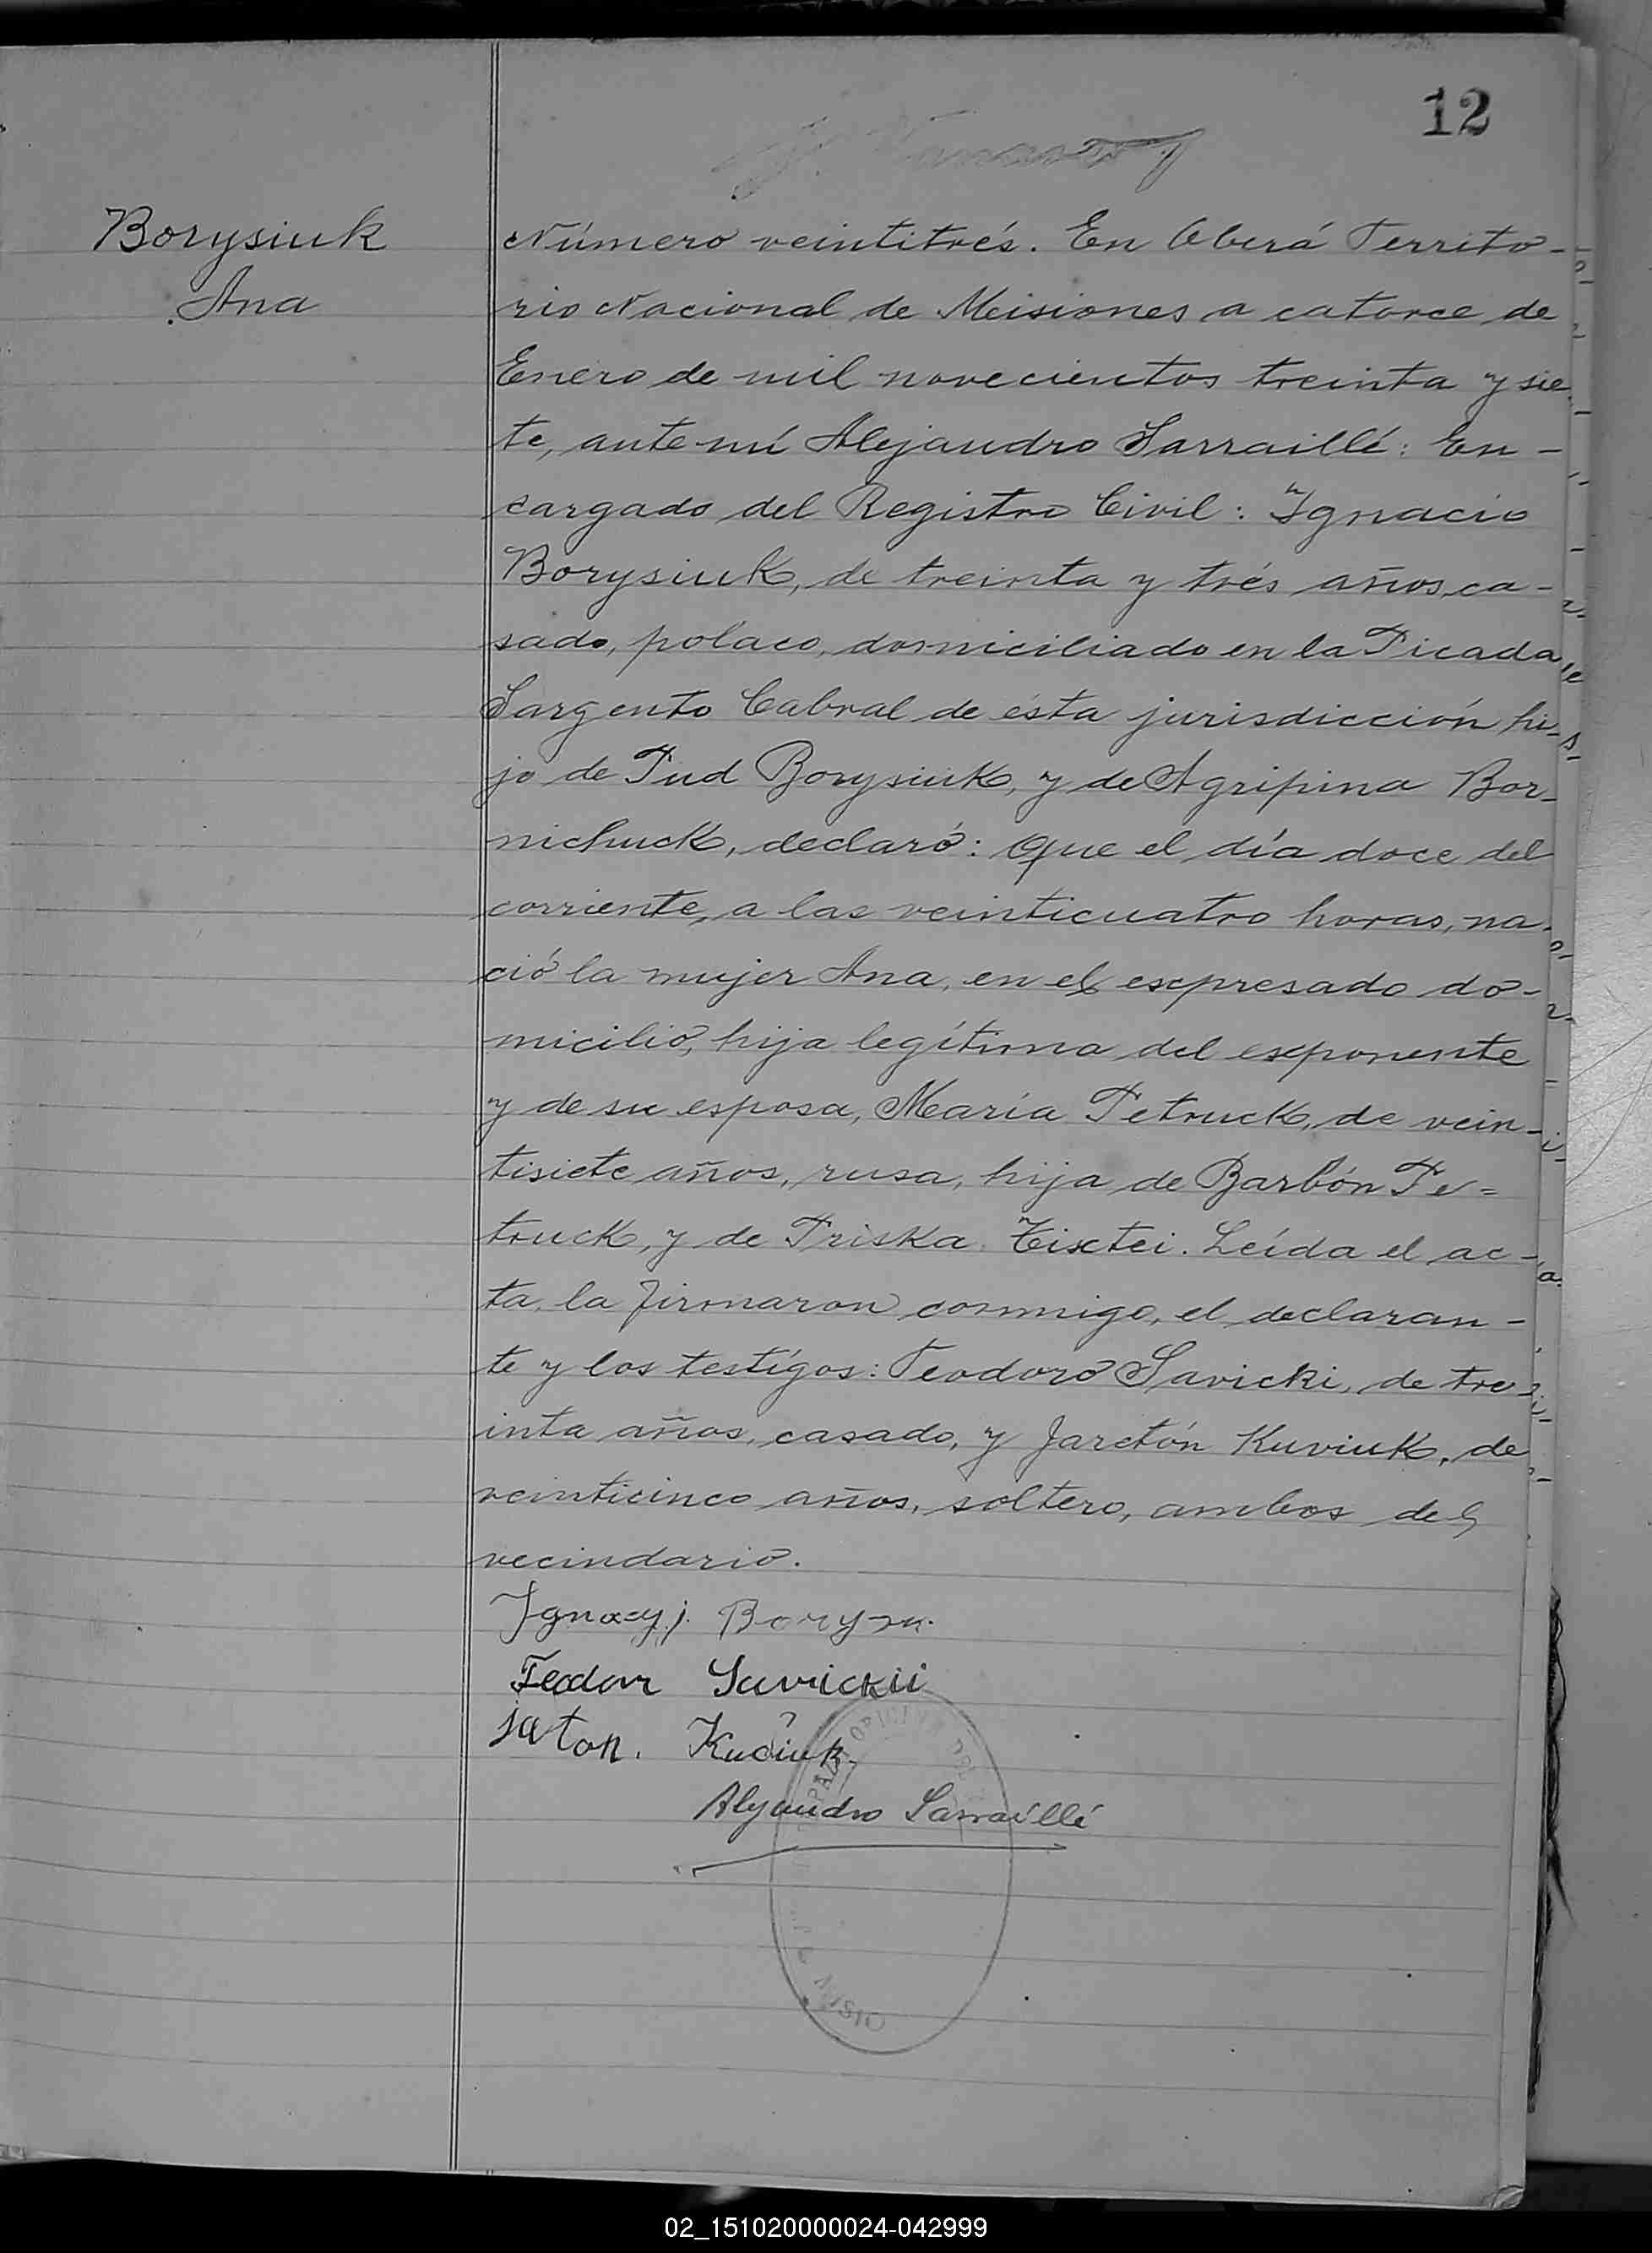 12
Borysiuk
Ana
Número veintitrés. En Oberá Territo-
rio Nacional de Misiones a catorce de
Enero de mil novecientos treinta y sie
te, ante mí Alejandro Sarraillé: En-
cargado del Registro Civil: Ignacio
Borysiuk, de treinta y trés años, ca-
sado, polaco, domiciliado en la Picada
Sargento Cabral de ésta jurisdicción hi-
jo de Tud Borysiuk, y de Agripina Bor-
nichuck, declaró: Que el día doce del
corriente, a las veinticuatro horas, na-
ció la mujer Ana, en el expresado do-
micilio, hija legítima del exponente
y de su esposa, María Petruck, de vein-
tisiete años, rusa, hija de Barbón Pe=
truck, y de Priska Tixtei. Leída el ac-
ta, la firmaron conmigo, el declaran-
te y los testígos: Teodoro Savicki, de tre
inta años, casado, y Jarctón Kuviuk, de
veinticinco años, soltero, ambos del
vecindario.
Ignacyj. Borysu.
Feodor Savickii
jaton. Kuciuk
Alejandro Sarraillé
02_151020000024-042999